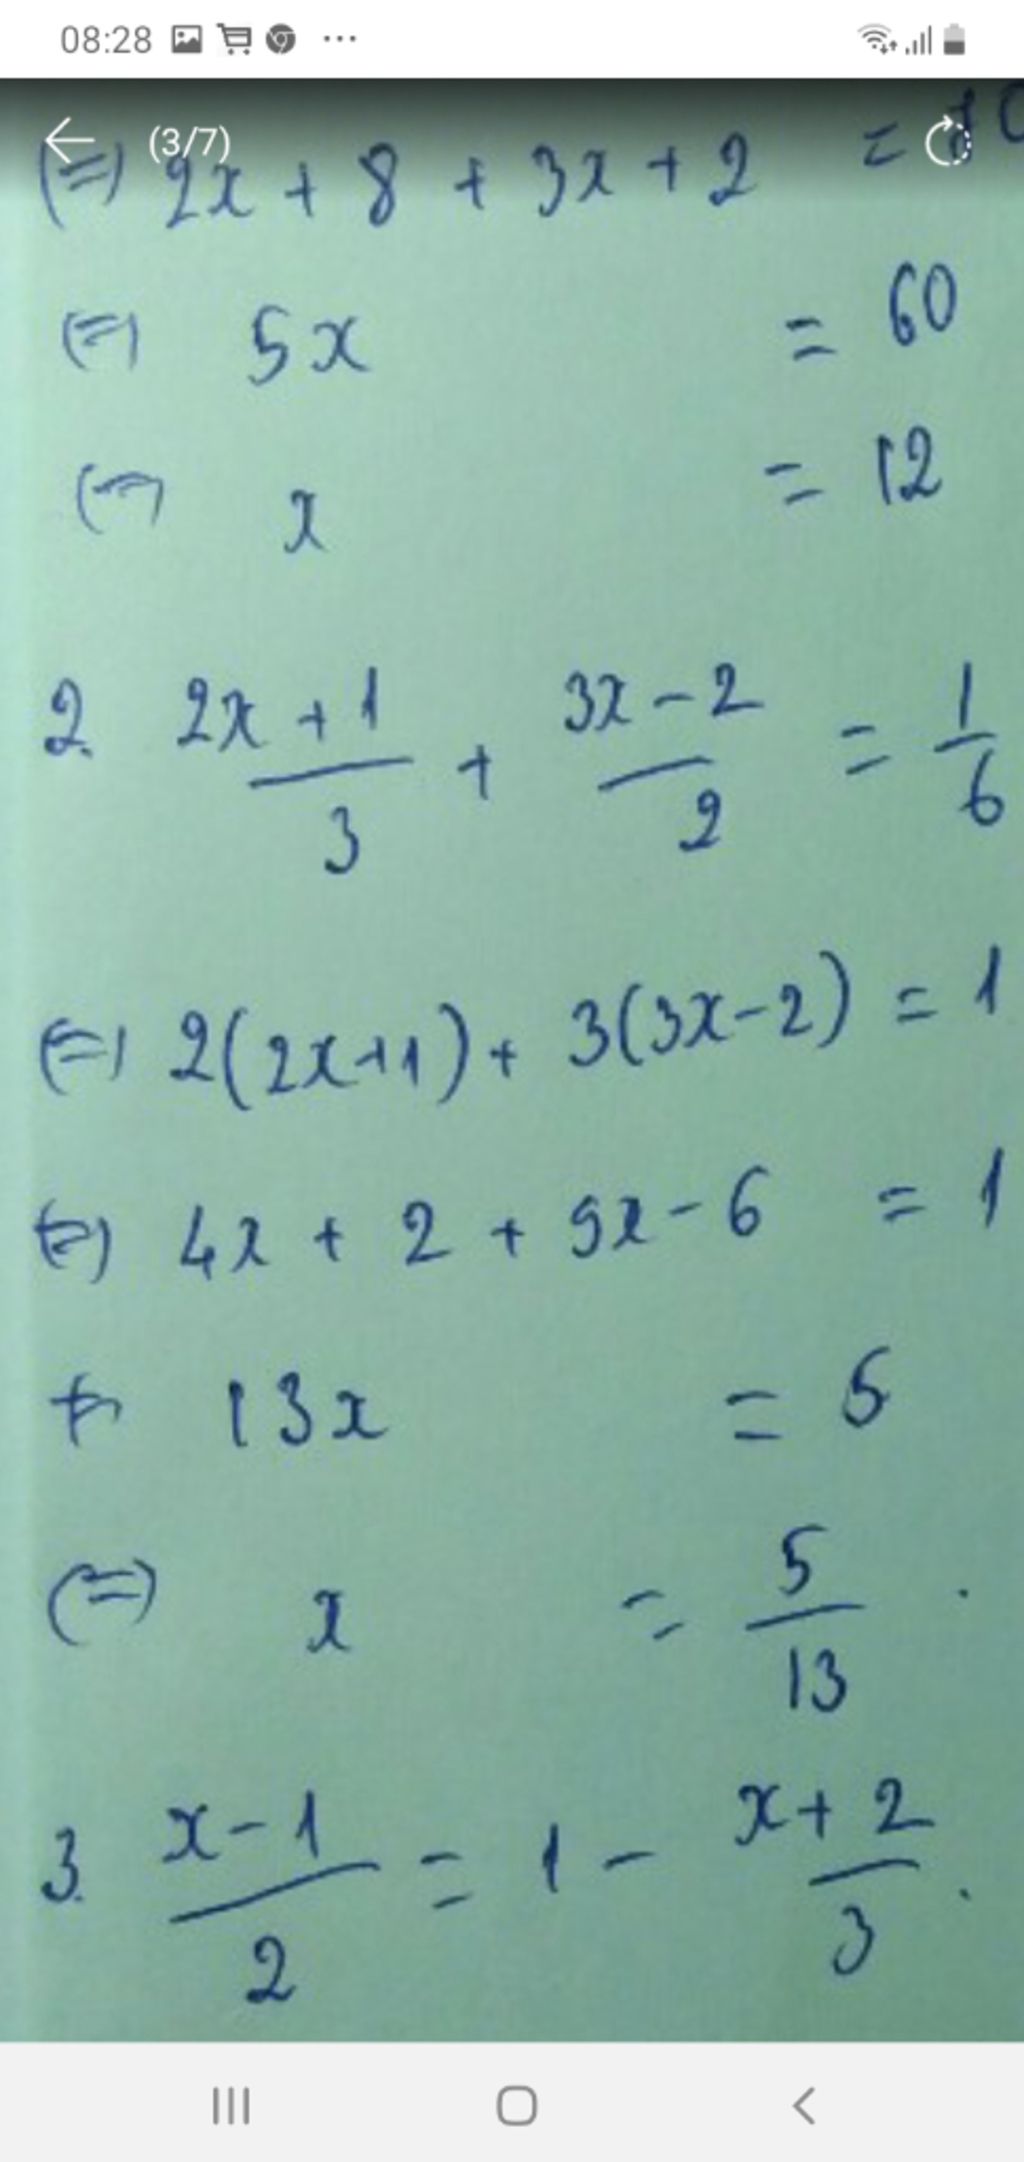 08:28
(3/7)
(=) 2x + 8 + 3x + 2 =
(=) 5x = 60
(=) x = 12
2. 2x + 1 / 3 + 3x - 2 / 2 = 1 / 6
(=) 2(2x+1) + 3(3x-2) = 1
(=) 4x + 2 + 9x - 6 = 1
13x = 5
(=) x = 5 / 13 .
3. x - 1 / 2 = 1 - x + 2 / 3 .